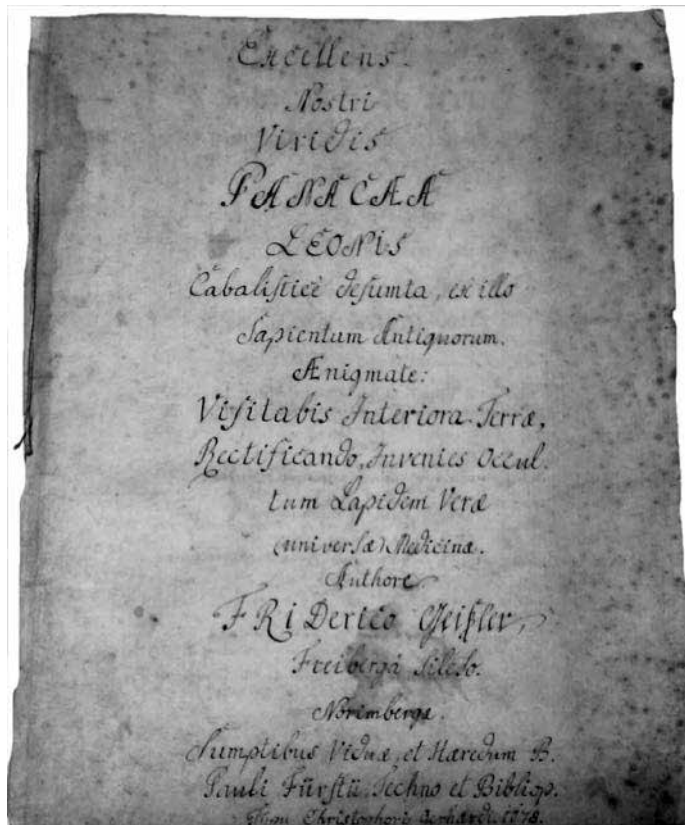 Excellens.
Nostri
Viridis
PANACÆA
LEONiS
Cabalisticè desumta, ex illo
Sapientum Antiquorum.
Ænigmate:
Visitabis Interiora Terræ,
Rectificando, Invenies Occul.
tum Lapidem Veræ
(universæ) Medicinæ.
Authore.
FRiDerico Geißler,
Freibergâ Sileso.
Norimbergæ.
Sumptibus Viduæ, et Hæredum B.
Pauli Fürstii, Techno et Bibliop.
Typis Christophori Gerhardi. 1678.